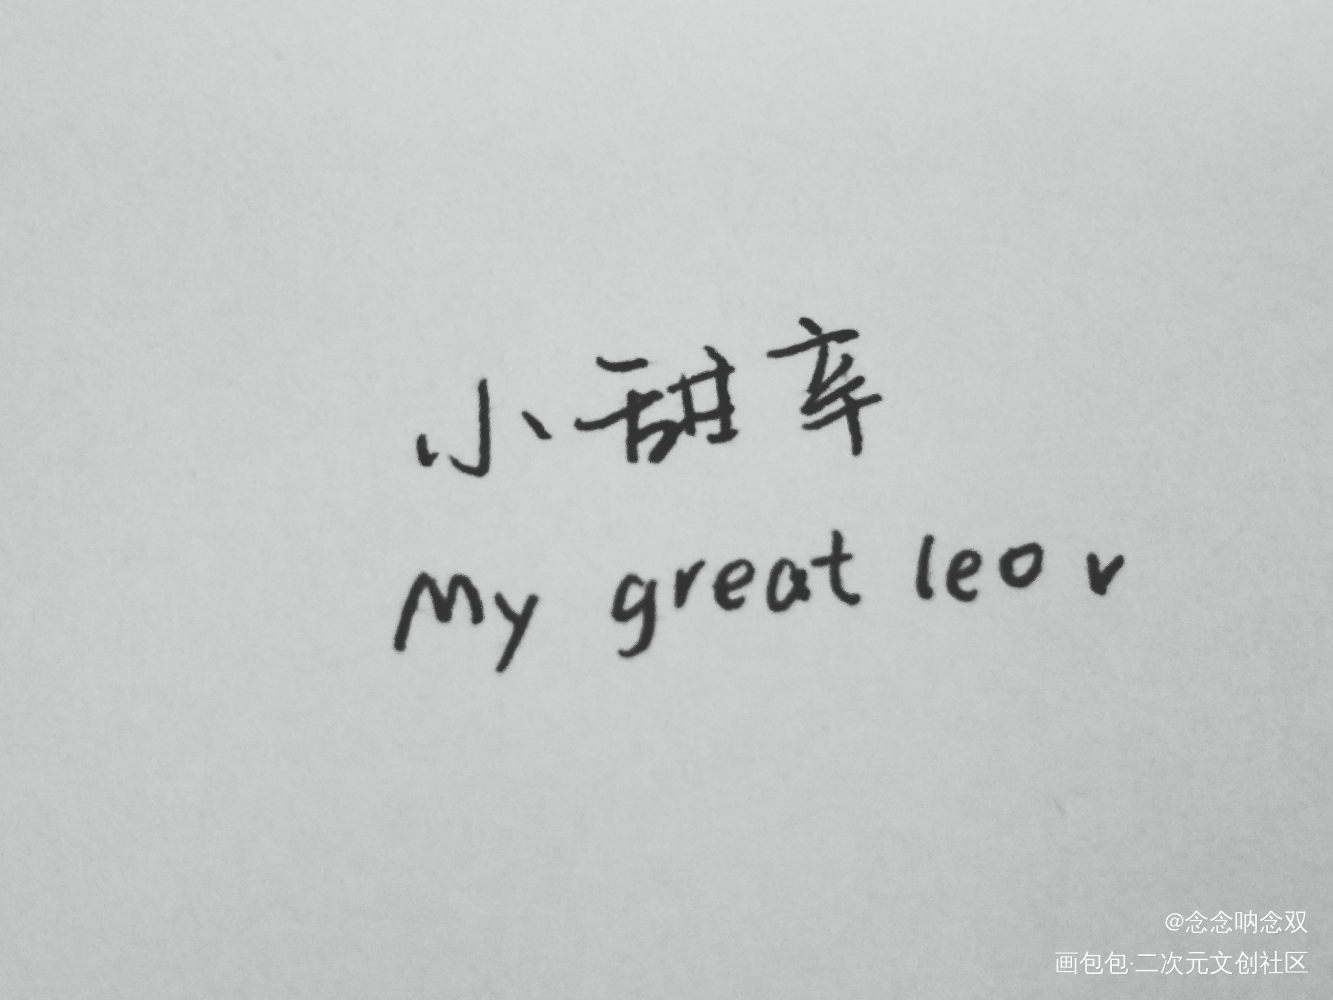 小甜
My great leo v
@念念呐念双
画包包·二次元文创社区